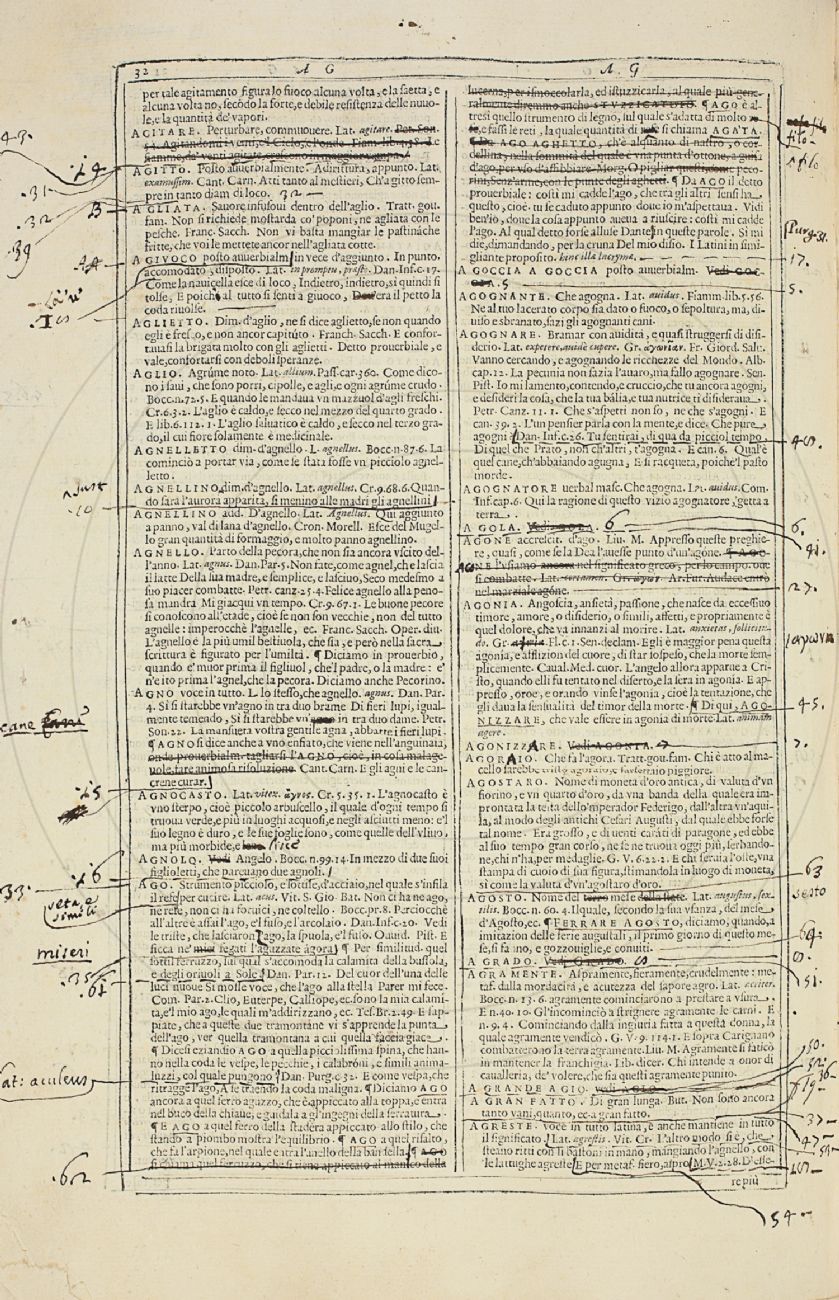 32
A G
A G
per tale agitamento figura lo fuoco alcuna volta, e la saetta, e
alcuna volta no, secõdo la forte, e debile resistenza delle nuuo-
le, e la quantità de' vapori.
AGITARE. Perturbare, commuouere. Lat. agitare.
AGITTO. Posto auuerbialmente. Adirittura, appunto. Lat.
examussim. Cant. Carn. Atti tanto al mestieri, Ch'a gitto sem-
pre in tanto diam di loco. 32
AGLIATA. Sauore infusoui dentro dell'aglio. Tratt. gou.
fam. Non si richiede mostarda co' poponi, ne agliata con le
pesche. Franc. Sacch. Non vi basta mangiar le pastináche
fritte, che voi le mettete ancor nell'agliata cotte.
A GIVOCO posto auuerbialm. in vece d'aggiunto. In punto.
accomodato, disposto. Lat. in promptu, præsto. Dan. Inf. c. 17.
Come la nauicella esce di loco, Indietro, indietro, si quindi si
tolse, E poichè al tutto si sentì a giuoco, era il petto la
coda riuolse.
AGLIETTO. Dim. d'aglio, ne si dice aglietto, se non quando
egli è fresco, e non ancor capitúto. Franch. Sacch. E confor-
tauasi la brigata molto con gli aglietti. Detto prouerbiale, e
vale, confortarsi con deboli speranze.
AGLIO. Agrúme noto. Lat. allium. Pass. car. 360. Come dico-
no i saui, che sono porri, cipolle, e agli, e ogni agrúme crudo.
Bocc. n. 72. 5. E quando le mandaua vn mazzuol d'agli freschi.
Cr. 6. 3. 2. L'aglio è caldo, e secco nel mezzo del quarto grado.
E lib. 6. 112. 1. L'aglio saluatico è caldo, e secco nel terzo gra-
do, il cui fiore solamente è medicinale.
AGNELLETTO dim. d'agnello. L. agnellus. Bocc. n. 87. 6. La
cominciò a portar via, come se stata fosse vn picciolo agnel-
letto.
AGNELLINO, dim. d'agnello. Lat. agnellus. Cr. 9. 68. 6. Quan-
do sarà l'aurora apparita, si menino alle madri gli agnellini
AGNELLINO add. D'agnello. Lat. Agnellus. Qui aggiunto
a panno, val di lana d'agnello. Cron. Morell. Esce del Mugel-
lo gran quantità di formaggio, e molto panno agnellino.
AGNELLO. Parto della pecora, che non sia ancora vscito del-
l'anno. Lat. agnus. Dan. Par. 5. Non fate, come agnel, che lascia
il latte Della sua madre, e semplice, e lasciuo, Seco medesmo a
suo piacer combatte. Petr. canz. 25. 4. Felice agnello alla peno-
sa mandra Mi giacqui vn tempo. Cr. 9. 67. 1. Le buone pecore
si conoscono all'etade, cioè se non son vecchie, non del tutto
agnelle: imperocchè l'agnelle, ec. Franc. Sacch. Oper. diu.
L'agnello è la più umil bestiuola, che sia, e però nella sacra
scrittura è figurato per l'umiltà. ¶ Diciamo in prouerbio,
quando e' muor prima il figliuol, che 'l padre, o la madre: e'
n'è ito prima l'agnel, che la pecora. Diciamo anche Pecorino.
AGNO voce in tutto. L. lo stesso, che agnello. agnus. Dan. Par.
4. Sì si starebbe vn'agno in tra duo brame Di fieri lupi, igual-
mente temendo, Sì si starebbe vn' in tra duo dame. Petr.
Son. 22. La mansueta vostra gentile agna, abbatte i fieri lupi.
¶ AGNO si dice anche a vno enfiato, che viene nell'anguinaia,
Cant. Carn. E gli agni e le can-
crene curar.
AGNOCASTO. Lat. vitex. ἄγνος. Cr. 5. 35. 1. L'agnocasto è
vno sterpo, cioè piccolo arbuscello, il quale d'ogni tempo si
truoua verde, e più in luoghi acquosi, e negli asciutti meno: e 'l
suo legno è duro, e le sue foglie sono, come quelle dell'vliuo,
ma più morbide, e
AGNOLO. Vedi Angelo. Bocc. n. 99. 14. In mezzo di due suoi
figlioletti, che pareuano due agnoli.
AGO. Strumento picciolo, e sottile, d'acciaio, nel quale s'infila
il refe per cucire. Lat. acus. Vit. S. Gio. Bat. Non ci ha ne ago,
ne refe, non ci ha forbici, ne coltello. Bocc. pr. 8. Perciocchè
all'altre è assai l'ago, e 'l fuso, e l'arcolaio. Dan. Inf. c. 20. Vedi
le triste, che lasciaron l'ago, la spuola, e 'l fuso. Ouuid. Pist. E
ficca ne' miei segati l'aguzzate agora. ¶ Per similitud. quel
sottil ferruzzo, sul qual s'accomoda la calamita della bussola,
e degli oriuoli a Sole. Dan. Par. 12. Del cuor dell'vna delle
luci nuoue Si mosse voce, che l'ago alla stella Parer mi fece.
Com. Par. 2. Clio, Euterpe, Calliope, ec. sono la mia calami-
ta, e 'l mio ago, le quali m'addirizzano, ec. Tes. Br. 2. 49. E sap-
piate, che a queste due tramontáne vi s'apprende la punta
dell'ago, ver quella tramontana a cui quella faccia giace.
¶ Dicesi eziandio AGO a quella piccolissima spina, che han-
no nella coda le vespe, le pecchie, i calabróni, e simili anima-
luzzi, col quale pungono. Dan. Purg. c. 32. E come vespa, che
ritragge l'ago, A se traendo la coda maligna. ¶ Diciamo AGO
ancora a quel ferro aguzzo, che è appiccato alla toppa, e entra
nel buco della chiaue, e guidala a gl'ingegni della serratura.
¶ E AGO a quel ferro della stadera appiccato allo stilo, che
stando a piombo mostra l'equilibrio. ¶ AGO a quel risalto,
che fa l'arpione, nel quale entra l'anello della bandella. ¶ AGO
si chiama quel ferruzzo, che si tiene appiccato al manico della
lucerna, per ismoccolarla, ed istuzzicarla, al quale più gene-
ralmente diremmo anche STVZZICATOIO. ¶ AGO è al-
tresì quello strumento di legno, sul quale s'adatta di molto
e, e fassi le reti, la quale quantità di si chiama AGATA.
¶ Da AGO AGHETTO, ch'è alquanto di nastro, o cor-
dellina, nella sommità del quale è vna punta d'ottone, a guisa
d'ago, per vso d'affibbiare.
¶ Da AGO il detto
prouerbiale: così mi cadde l'ago, che tra gli altri sensi ha
questo, cioè. tu se' caduto appunto doue io m'aspettaua. Vidi
ben'io, doue la cosa appunto aueua a riuscire: così mi cadde
l'ago. Al qual detto forse alluse Dante in queste parole. Sì mi
die, dimandando, per la cruna Del mio disio. I Latini in simi-
gliante proposito. hinc illæ lacrymæ.
A GOCCIA A GOCCIA posto auuerbialm.
AGOGNANTE. Che agogna. Lat. auidus. Fiamm. lib. 5. 56.
Ne al tuo lacerato corpo sia dato o fuoco, o sepoltura, ma, di-
uiso e sbranato, sazj gli agognanti cani.
AGOGNARE. Bramar con auidità, e quasi struggersi di disi-
derio. Lat. expetere, auide cupere. Gr. ἀγωνιᾷν. Fr. Giord. Salu.
Vanno cercando, e agognando le ricchezze del Mondo. Alb.
cap. 12. La pecunia non sazia l'auaro, ma fallo agognare. Sen.
Pist. Io mi lamento, contendo, e cruccio, che tu ancora agogni,
e desideri la cosa, che la tua bália, e tua nutrice ti disideraua.
Petr. Canz. 11. 1. Che s'aspetti non so, ne che s'agogni. E
can. 39. 2. L'un pensier parla con la mente, e dice. Che pure
agogni? Dan. Inf. c. 26. Tu sentirai, di qua da picciol tempo,
Di quel che Prato, non ch'altri, t'agogna. E can. 6. Qual'è
quel cane, ch'abbaiando agugna, E si racqueta, poichè 'l pasto
morde.
AGOGNATORE uerbal masc. Che agogna. Lat. auidus. Com.
Inf. cap. 6. Qui la ragione di questo vizio agognatore, getta a
terra.
A GOLA. 6
AGONE accrescit. d'ago. Liu. M. Appresso queste preghie-
re, quasi, come se la Dea l'auesse punto d'un'agóne.
AGONIA. Angoscia, ansietà, passione, che nasce da eccessiuo
timore, amore, o disiderio, o simili, affetti, e propriamente è
quel dolore, che va innanzi al morire. Lat. anxietas, sollicitu-
do. Gr. Fl. c. 1. Sen. declam. Egli è maggior pena questa
agonia, e afflizion del cuore, di star sospeso, che la morte sem-
plicemente. Caual. Med. cuor. L'angelo allora apparue a Cri-
sto, quando elli fu tentato nel diserto, e la sera in agonia. E ap-
presso, oroe, e orando vinse l'agonia, cioè la tentazione, che
gli daua la sensualità del timor della morte. ¶ Di qui, AGO-
NIZZARE, che vale essere in agonia di morte Lat. animam
agere.
AGONIZZARE. Vedi AGONIA.
AGORAIO. Che fa l'agora. Tratt. gou. fam. Chi è atto al ma-
cello sarebbe
AGOSTARO. Nome di moneta d'oro antica, di valuta d'vn
fiorino, e vn quarto d'oro, da vna banda della quale era im-
prontata la testa dello 'mperador Federigo, dall'altra vn'aqui-
la, al modo degli antichi Cesari Augusti, dal quale ebbe forse
tal nome. Era grosso, e di uenti caráti di paragone, ed ebbe
al suo tempo gran corso, ne se ne truoua oggi più, serbando-
ne, chi n'ha, per medaglie. G. V. 6. 22. 2. E chi seruia l'oste, vna
stampa di cuoio di sua figura, stimandola in luogo di moneta,
sì come la valuta d'vn'agostaro d'oro.
AGOSTO. Nome del mese Lat. augustus, sex-
tilis. Bocc. n. 60. 4. Il quale, secondo la sua vsanza, del mese
d'Agosto, ec. ¶ FERRARE AGOSTO, diciamo, quando, a
imitazion delle ferie augustali, il primo giorno di questo me-
se, si fa uno, e gozzouiglie, e conuiti.
A GRADO. Vedi GRADO.
AGRAMENTE. Aspramente, fieramente, crudelmente: me-
taf. dalla mordacità, e acutezza del sapore agro. Lat. acriter.
Bocc. n. 13. 6. agramente cominciarono a prestare a vsura.
E n. 40. 10. Gl'incominciò a strignere agramente le carni. E
n. 9. 4. Cominciando dalla ingiuria fatta a questa donna, la
quale agramente vendicò. G. V. 9. 114. 1. E sopra Carignano
combatterono la terra agramente. Liu. M. Agramente si faticò
in mantener la franchigia. Lib. dicer. Chi intende a onor di
caualleria, de' volere, che sia questi agramente punito.
A GRANDE AGIO. vedi AGIO.
A GRAN FATTO. Di gran lunga. But. Non sono ancora
tanto vani, quanto, ec. a gran fatto.
AGRESTE. voce in tutto latina, e anche mantien in tutto
il significato. Lat. agrestis. Vit. Cr. L'altro modo si è, che
steano ritti con li bastoni in mano, mangiando l'agnello, con
le lattughe agreste. E per metaf. fiero, aspro. M. V. 2. 28. Di esse-
re più
43.
.31.
32
39
10
15
16
33.
miseri
.35
61
Lat: aculeus
.62
filo
Purg. 31.
17.
5.
48.
6.
41.
27.
45.
7.
63
sesto
64
51.
50.
52.
37
47
54